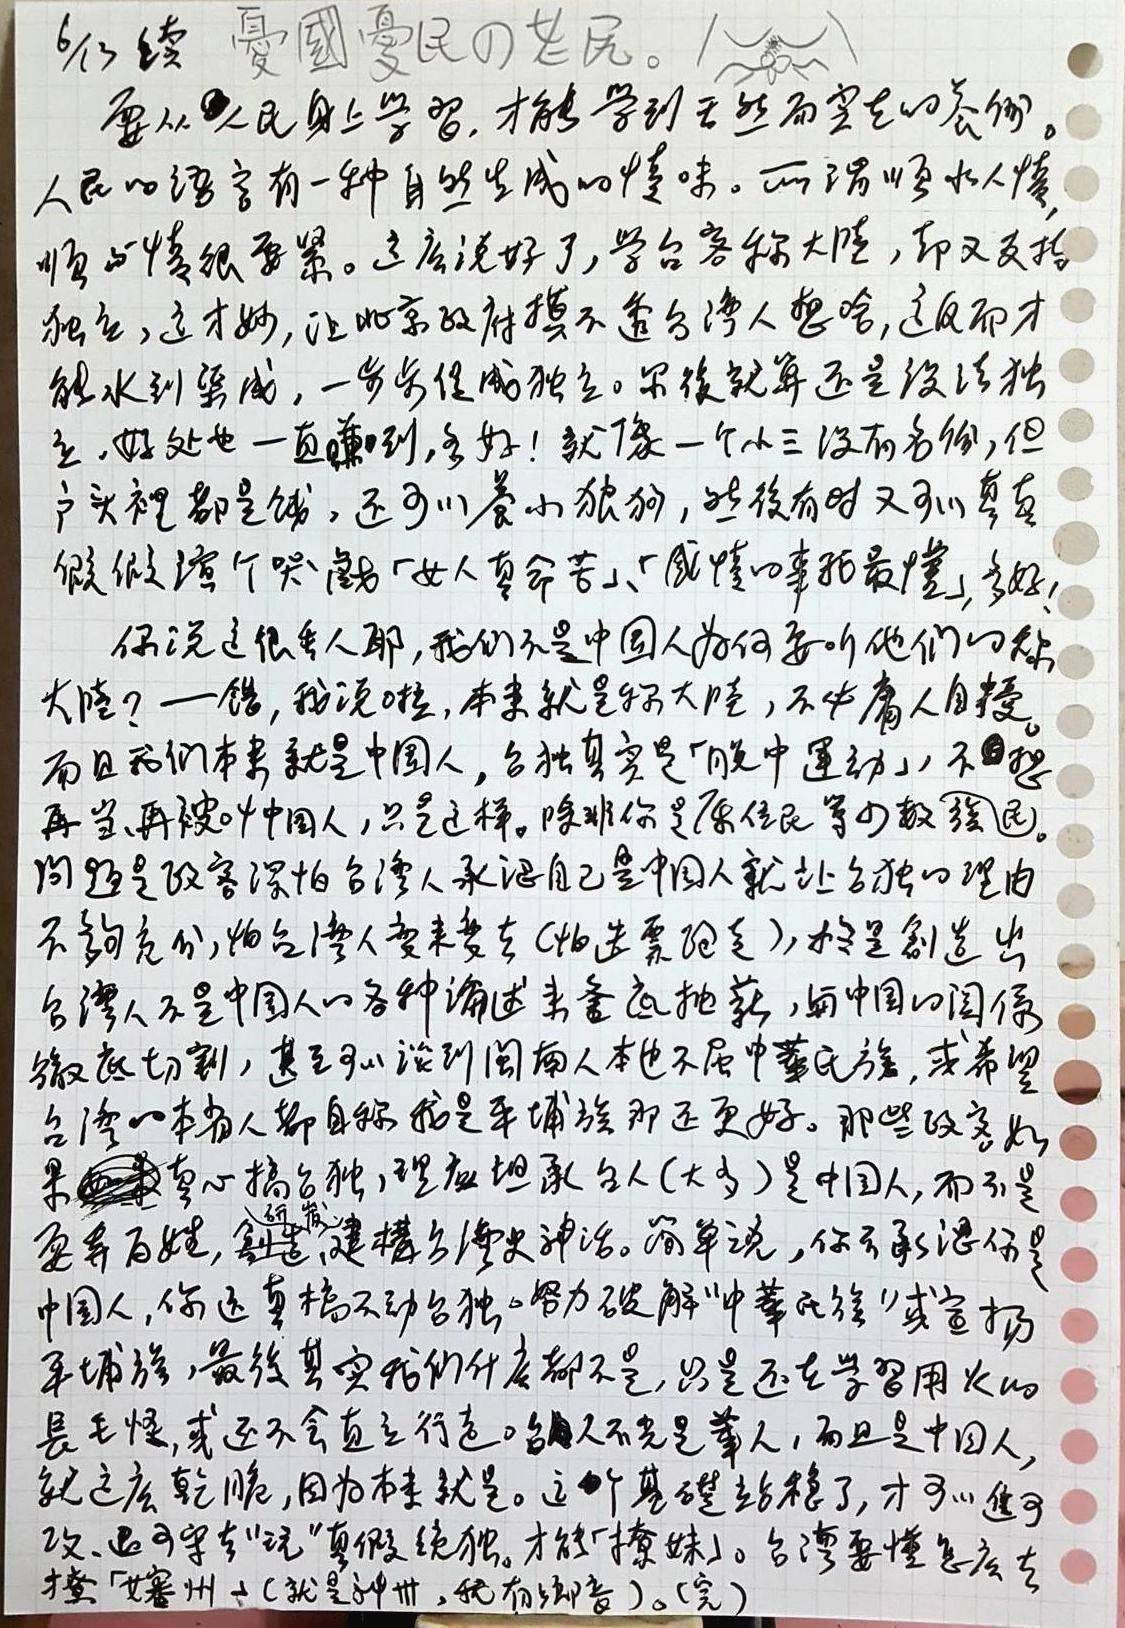 6/13 續 憂國憂民の老尻。
要从人民身上学習，才能学到天然而実在的养份。
人民的語言有一种自然生成的情味。所謂順水人情，
順的情很要緊。这庅说好了，学台客称大陸，却又支持
独立，这才妙，让北京政府摸不透台湾人想啥，这反而才
能水到渠成，一步步促成独立。尔後就算还是没法独
立，好处也一直賺到，多好！就像一个小三没有名份，但
户头裡都是錢，还可以养小狼狗，然後有时又可以真真
假假演个哭戲「女人真命苦」、「感情的事我最懂」，多好！
你说这很丢人耶，我们不是中国人为何要听他们的称
大陸？一錯，我说啦，本来就是称大陸，不必庸人自擾。
而且我们本来就是中国人，台独其实是「脱中運动」，不想
再当、再被叫中国人，只是这样。除非你是原住民等少数族民。
問題是政客深怕台湾人承認自己是中国人就让台独的理由
不夠充份，怕台湾人变来变去（怕选票跑走），於是創造出
台湾人不是中国人的各种論述来釜底抽薪，与中国的関係
徹底切割，甚至可以談到閩南人本也不屈中華民族，或希望
台湾的本省人都自称我是平埔族那还更好。那些政客如
果真心搞台独，理应坦承台人（大多）是中国人，而不是
耍弄百姓，研发、建構台湾史神话。簡单说，你不承認你是
中国人，你还真搞不动台独。努力破解"中華民族"或宣扬
平埔族，最後其实我们什庅都不是，只是还在学習用火的
長毛怪，或还不会直立行走。台人不光是華人，而且是中国人，
就这庅乾脆，因为本来就是。这个基礎站穩了，才可以進可
攻、退可守去"玩"真假统独。才能「撩妹」。台湾要懂怎庅去
撩「女審州」（就是神州，我有鄉音）。（完）